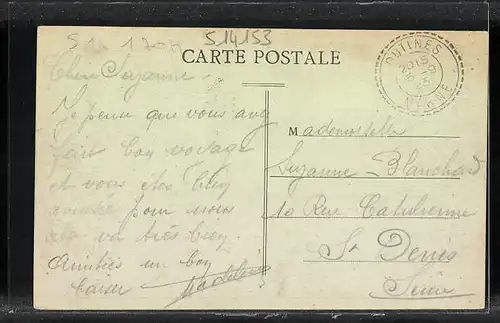 514153
CARTE POSTALE
OUTINES
MARNE
Chère Suzanne
Je pense que vous avez
fait bon voyage
et vous êtes bien
pour nous
va très bien
Amitiés un bon
baiser Madeleine
Mademoiselle
Suzanne Blanchard
10 Rue Catulienne
St Denis
Seine